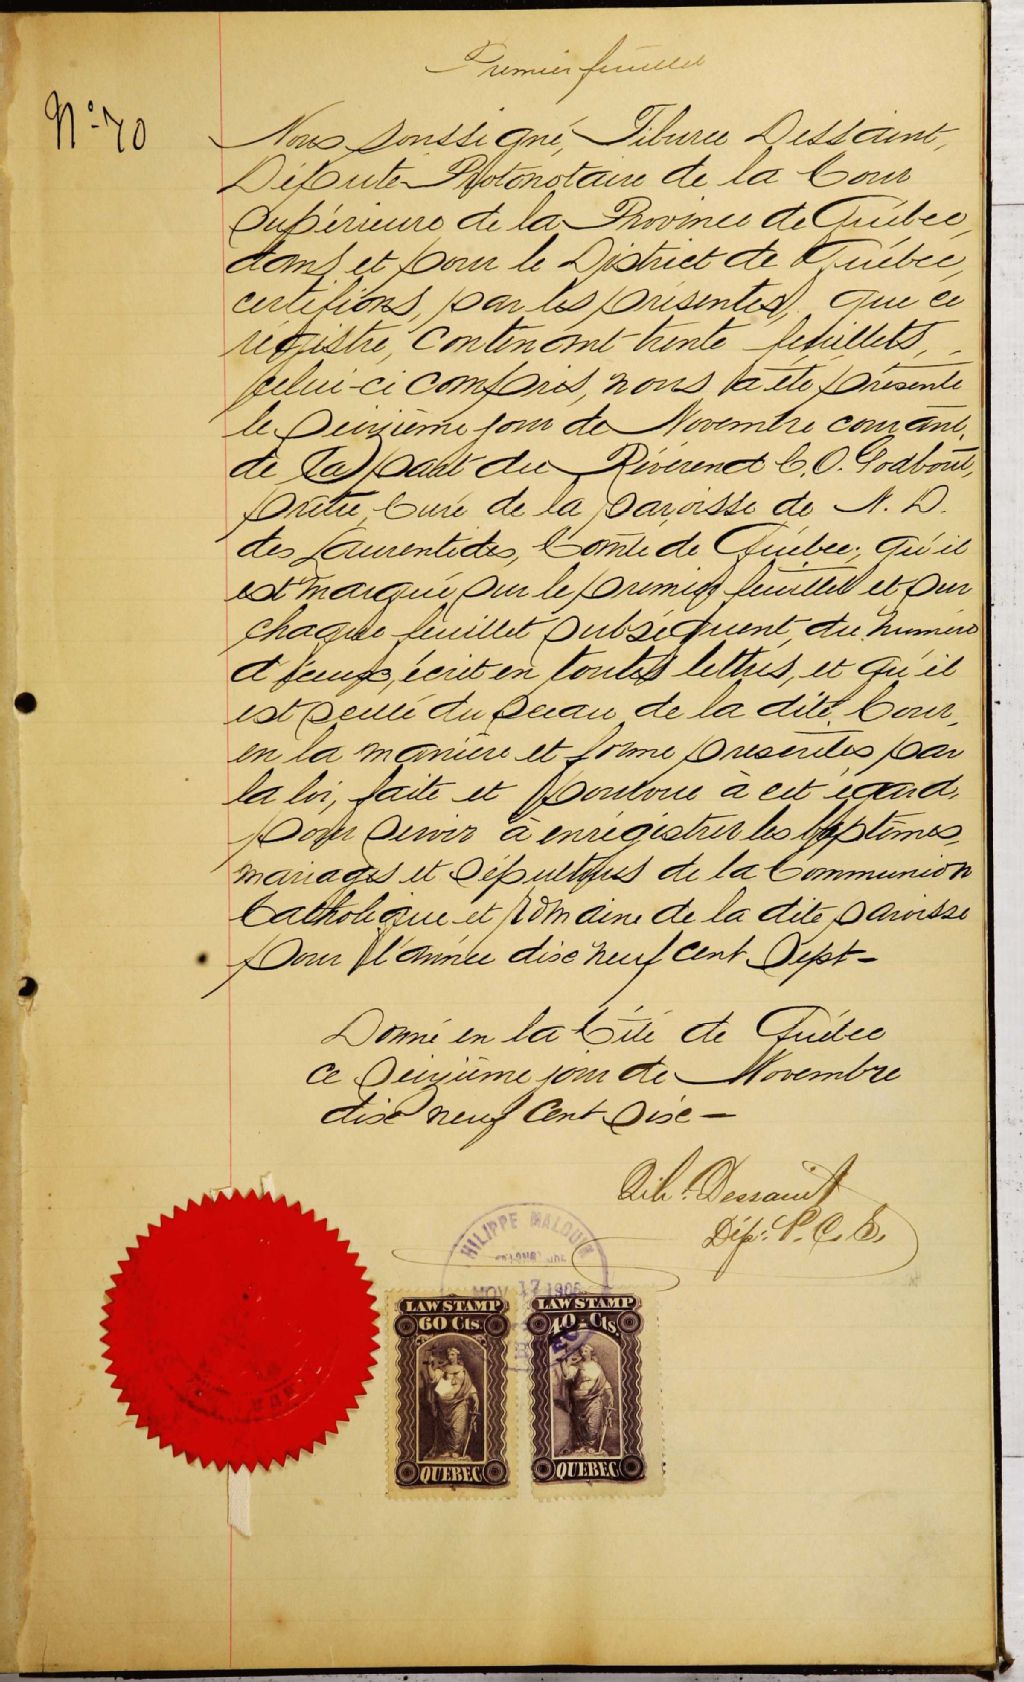 Premier feuillet
No. 70
Nous soussigné, Tiburce Dessaint,
Député Protonotaire de la Cour
Supérieure de la Province de Québec,
dans et pour le District de Québec,
certifions, par les présentes, que ce
régistre, contenant trente feuillets,
celui-ci compris, nous a été présenté
le seizième jour de Novembre courant,
de la part du Révérend C. O. Godbout,
prêtre, Curé de la paroisse de N. D.
des Laurentides, Comté de Québec; qu'il
est marqué sur le premier feuillet et sur
chaque feuillet subséquent, du numéro
d'iceux, écrit en toutes lettres, et qu'il
est scellé du sceau de la dite Cour,
en la manière et forme prescrites par
la loi, faite et pourvue à cet égard,
pour servir à enrégistrer les baptêmes,
mariages et sépultures de la Communion
Catholique et romaine de la dite paroisse
pour l'année dix neuf cent Sept —
Donné en la Cité de Québec
ce seizième jour de Novembre
dix neuf cent six —
Tib. Dessaint
Dép. P. C. S.
PHILIPPE MALOUIN
NOV 17 1906
LAW STAMP
60 Cts.
QUEBEC
LAW STAMP
40 Cts.
QUEBEC